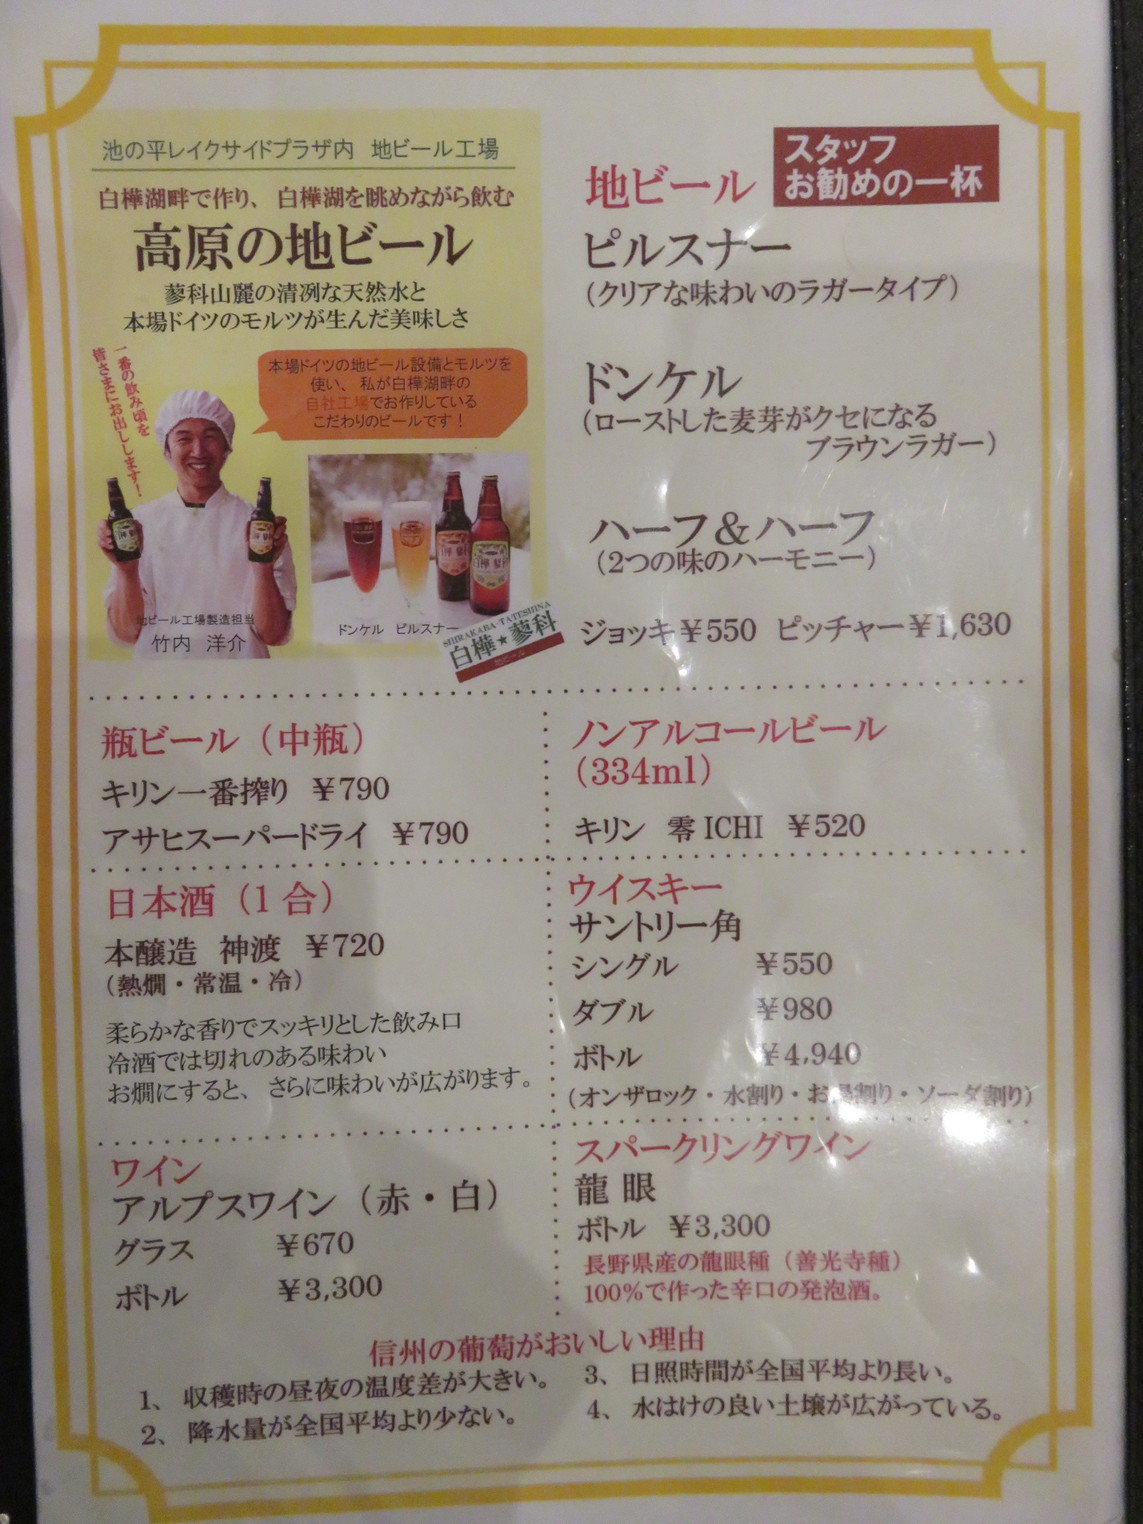 池の平レイクサイドプラザ内 地ビール工場
白樺湖畔で作り、白樺湖を眺めながら飲む
高原の地ビール
蓼科山麓の清冽な天然水と
本場ドイツのモルツが生んだ美味しさ
一番の飲み頃を
皆さまにお出しします!
本場ドイツの地ビール設備とモルツを
使い、私が白樺湖畔の
自社工場でお作りしている
こだわりのビールです!
地ビール工場製造担当
竹内 洋介
ドンケル ピルスナー
SHIRAKABA・TATESHINA
白樺★蓼科
地ビール
地ビール
スタッフ
お勧めの一杯
ピルスナー
(クリアな味わいのラガータイプ)
ドンケル
(ローストした麦芽がクセになる
ブラウンラガー)
ハーフ&ハーフ
(2つの味のハーモニー)
ジョッキ¥550 ピッチャー¥1,630
瓶ビール(中瓶)
キリン一番搾り ¥790
アサヒスーパードライ ¥790
ノンアルコールビール
(334ml)
キリン 零ICHI ¥520
日本酒(1合)
本醸造 神渡 ¥720
(熱燗・常温・冷)
柔らかな香りでスッキリとした飲み口
冷酒では切れのある味わい
お燗にすると、さらに味わいが広がります。
ウイスキー
サントリー角
シングル ¥550
ダブル ¥980
ボトル ¥4,940
(オンザロック・水割り・お湯割り・ソーダ割り)
ワイン
アルプスワイン(赤・白)
グラス ¥670
ボトル ¥3,300
スパークリングワイン
龍眼
ボトル ¥3,300
長野県産の龍眼種(善光寺種)
100%で作った辛口の発泡酒。
信州の葡萄がおいしい理由
1、収穫時の昼夜の温度差が大きい。
2、降水量が全国平均より少ない。
3、日照時間が全国平均より長い。
4、水はけの良い土壌が広がっている。